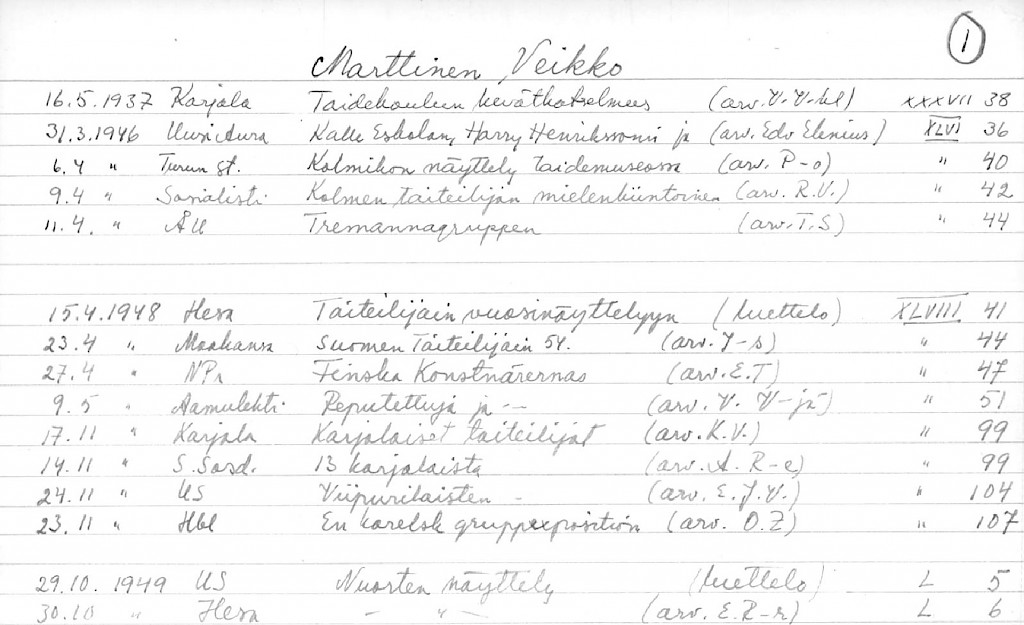 1
Marttinen, Veikko
16.5.1937 Karjala Taidekoulun kevätkatselmus (arv. V.V-hl) XXXVII 38
31.3.1946 Uusi Aura Kalle Eskolan, Harry Henrikssonin ja (arv. Edv Elenius) XLVI 36
6.4 " Turun St. Kolmikon näyttely taidemuseossa (arv. P-o) " 40
9.4 " Sosialisti Kolmen taiteilijan mielenkiintoinen (arv. R.V.) " 42
11.4. " ÅU Tremannagruppen (arv. T.S) " 44
15.4.1948 Hesa Taiteilijain vuosinäyttelyyn (luettelo) XLVIII 41
23.4 " Maakansa Suomen Taiteilijain 54. (arv. J-s) " 44
27.4 " NPr Finska Konstnärernas (arv. E.T) " 47
9.5 " Aamulehti Reputettuja ja -- (arv. V. V-jä) " 51
17.11 " Karjala Karjalaiset taiteilijat (arv. K.V.) " 99
14.11 " S.Sosd. 13 karjalaista (arv. A. R-e) " 99
24.11 " US Viipurilaisten - (arv. E.J.V.) " 104
23.11 " Hbl En karelsk gruppexposition (arv. O.Z) " 107
29.10. 1949 US Nuorten näyttely (luettelo) L 5
30.10 " Hesa - " - (arv. E.R-r) L 6